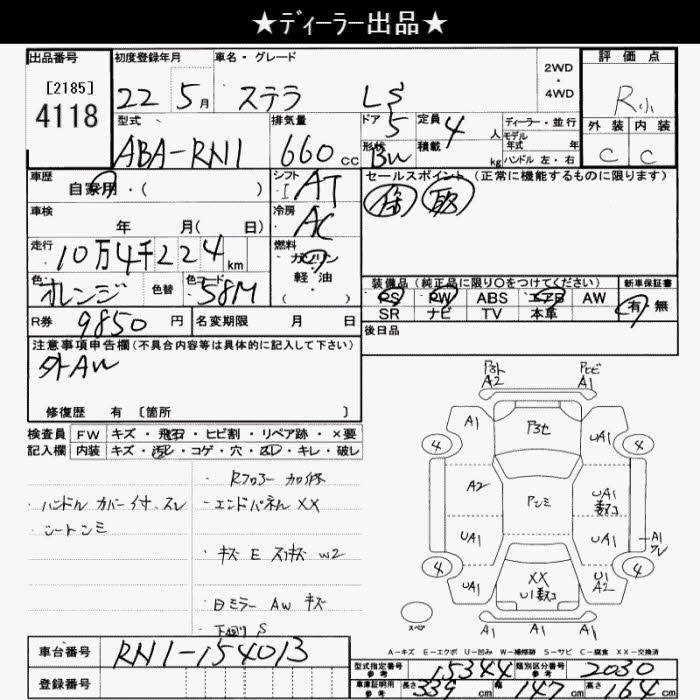 ★ディーラー出品★
出品番号
[2185]
4118
初度登録年月
22年 5月
車名・グレード
ステラ LS
2WD
・
4WD
評価点
R小
外装 内装
C C
型式
ABA-RN1
排気量
660 cc
ドア 5
形状 BW
定員 4 人
積載 kg
ディーラー・並行
モデル
年式 年
ハンドル 左・右
車歴
自家用・( )
シフト
I AT
セールスポイント (正常に機能するものに限ります)
保 取
車検
年 月( 日)
冷房
AC
走行
10万4千224 km
燃料
ガソリン
軽・油
色 オレンジ
色替
色コード 58M
装備品 (純正品に限り○をつけてください)
PS PW ABS エアB AW
SR ナビ TV 本革
新車保証書
有 無
R券 9850 円
名変期限 月 日
後日品
注意事項申告欄(不具合内容等は具体的に記入して下さい)
外AW
修復歴 有 [箇所 ]
検査員
記入欄
FW キズ・飛石・ヒビ割・リペア跡・×要
内装 キズ・汚レ・コゲ・穴・凹・キレ・破レ
・ハンドル カバー付. スレ
・シートシミ
・Rフロアー 加修
・エンドパネル XX
・キズ E スリキズ W2
・日ミラー AW キズ
・下回り S
A2
Pヒビ
A1
A1
UA1
4
4
A2
Pシミ
UA1
UA1
UA1
A1
スレ
4
4
UA1
XX
U1
U1
A2
A1 A1 A1
スペア
A-キズ E-エクボ U-凹み W-補修跡 S-サビ C-腐食 XX-交換済
車台番号
RN1-154013
登録番号
型式指定番号
参考
15344
類別区分番号
参考
2030
車庫証明用
参考
長さ 339 cm
幅 147 cm
高さ 164 cm